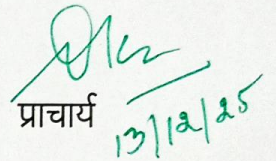 प्राचार्य
13/12/25